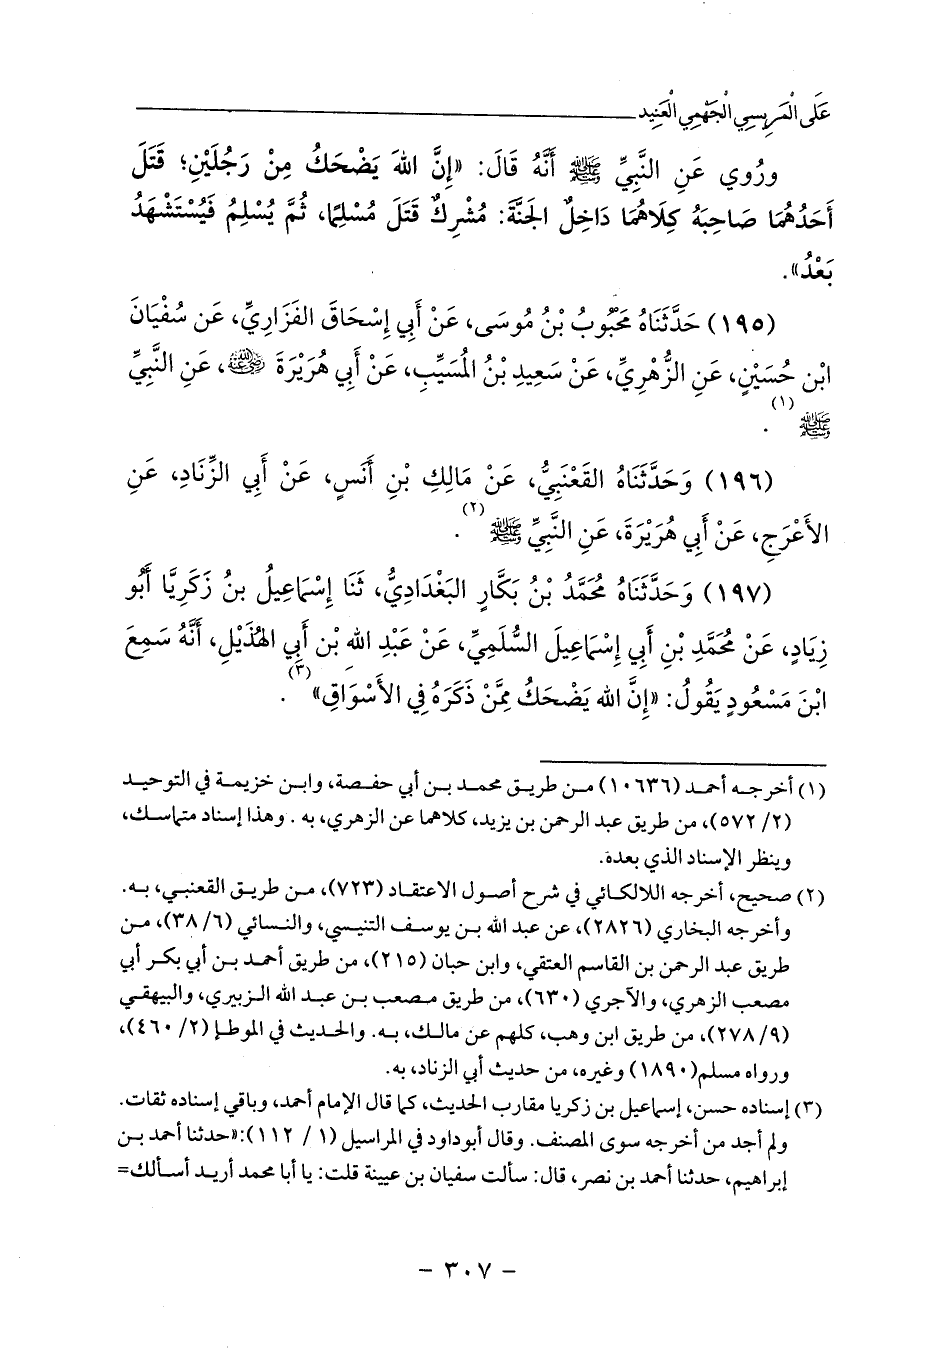 عَلَى الْمَرِيسِي الْجَهْمِي الْعَنِيد
ورُوي عَنِ النَّبِيِّ ﷺ أَنَّهُ قَالَ: «إِنَّ اللهَ يَضْحَكُ مِنْ رَجُلَيْنِ؛ قَتَلَ
أَحَدُهُمَا صَاحِبَهُ كِلَاهُمَا دَاخِلٌ الجَنَّةَ: مُشْرِكٌ قَتَلَ مُسْلِمًا، ثُمَّ يُسْلِمُ فَيُسْتَشْهَدُ
بَعْدُ».
(١٩٥) حَدَّثَنَاهُ مَحْبُوبُ بْنُ مُوسَى، عَنْ أَبِي إِسْحَاقَ الفَزَارِيِّ، عَن سُفْيَانَ
ابْن حُسَيْنٍ، عَنِ الزُّهْرِيِّ، عَنْ سَعِيدِ بْنُ المُسَيِّبِ، عَنْ أَبِي هُرَيْرَةَ رضي الله عنه، عَنِ النَّبِيِّ
ﷺ (١).
(١٩٦) وَحَدَّثَنَاهُ القَعْنَبِيُّ، عَنْ مَالِكِ بْنِ أَنَسٍ، عَنْ أَبِي الزِّنَادِ، عَنِ
الأَعْرَجِ، عَنْ أَبِي هُرَيْرَةَ، عَنِ النَّبِيِّ ﷺ (٢).
(١٩٧) وَحَدَّثَنَاهُ مُحَمَّدُ بْنُ بَكَّارٍ البَغْدَادِيُّ، ثَنَا إِسْمَاعِيلُ بنُ زَكَرِيَّا أَبُو
زِيَادٍ، عَنْ مُحَمَّدِ بْنِ أَبِي إِسْمَاعِيلَ السُّلَمِيِّ، عَنْ عَبْدِ اللهِ بْن أَبِي الهُذَيْلِ، أَنَّهُ سَمِعَ
ابْنَ مَسْعُودٍ يَقُولُ: «إِنَّ الله يَضْحَكُ مِمَّنْ ذَكَرَهُ فِي الأَسْوَاقِ» (٣).
(١) أخرجه أحمد (١٠٦٣٦) من طريق محمد بن أبي حفصة، وابن خزيمة في التوحيد
(٢/ ٥٧٢)، من طريق عبد الرحمن بن يزيد، كلاهما عن الزهري، به . وهذا إسناد متماسك،
وينظر الإسناد الذي بعده.
(٢) صحيح، أخرجه اللالكائي في شرح أصول الاعتقاد (٧٢٣)، من طريق القعنبي، به.
وأخرجه البخاري (٢٨٢٦)، عن عبد الله بن يوسف التنيسي، والنسائي (٦/ ٣٨)، من
طريق عبد الرحمن بن القاسم العتقي، وابن حبان (٢١٥)، من طريق أحمد بن أبي بكر أبي
مصعب الزهري، والآجري (٦٣٠)، من طريق مصعب بن عبد الله الزبيري، والبيهقي
(٩/ ٢٧٨)، من طريق ابن وهب، كلهم عن مالك، به. والحديث في الموطإ (٢/ ٤٦٠)،
ورواه مسلم(١٨٩٠) وغيره، من حديث أبي الزناد، به.
(٣) إسناده حسن، إسماعيل بن زكريا مقارب الحديث، كما قال الإمام أحمد، وباقي إسناده ثقات.
ولم أجد من أخرجه سوى المصنف. وقال أبو داود في المراسيل (١/ ١١٢):«حدثنا أحمد بن
إبراهيم، حدثنا أحمد بن نصر، قال: سألت سفيان بن عيينة قلت: يا أبا محمد أريد أسألك=
- ٣٠٧ -